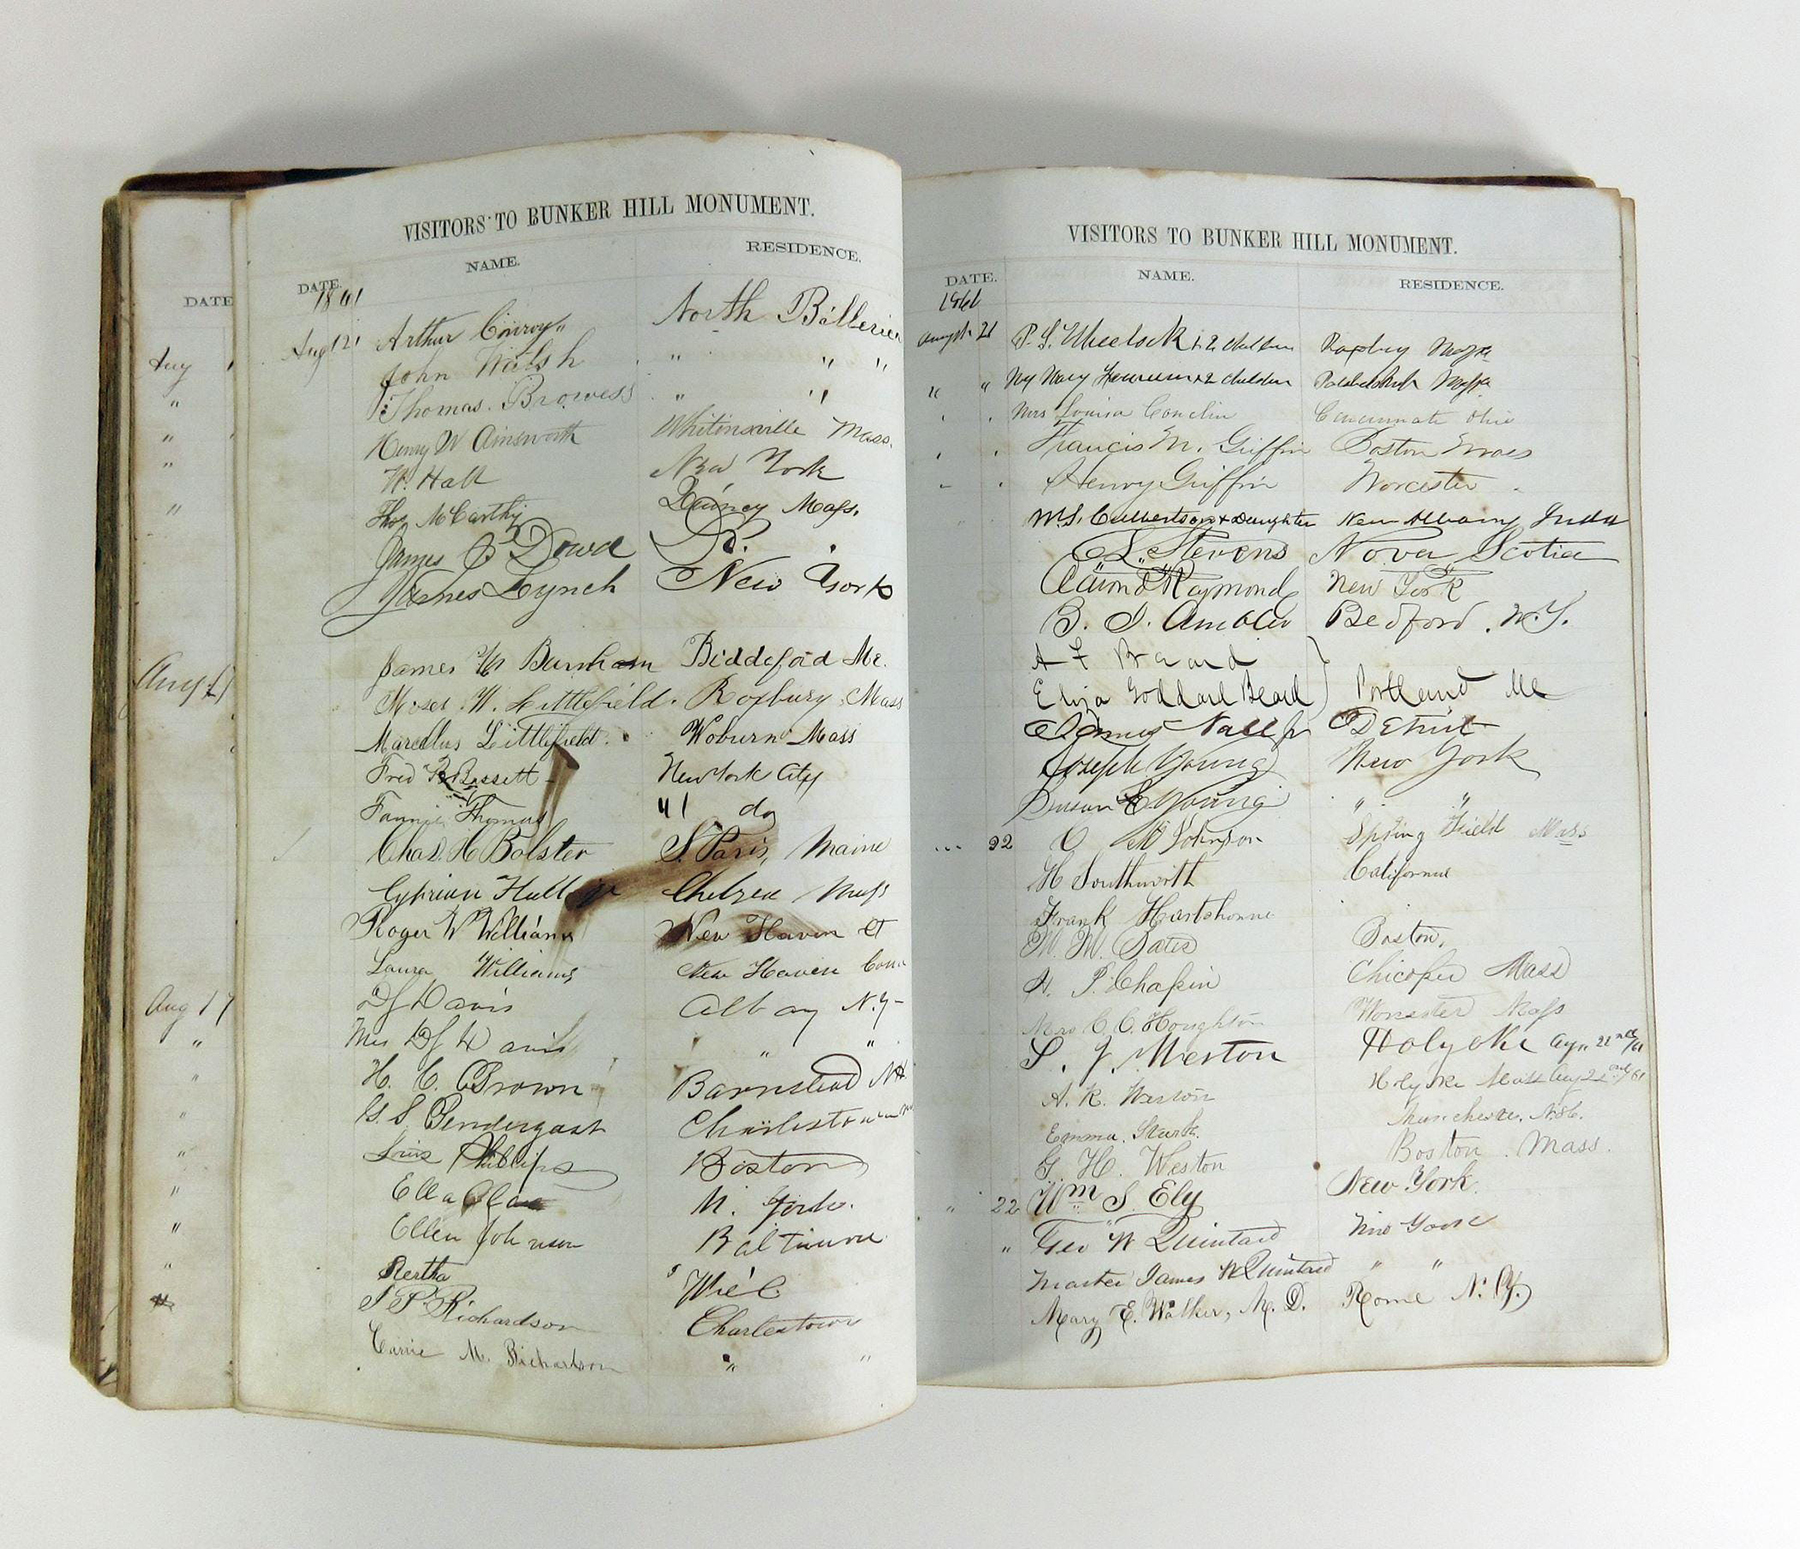 DATE
Aug
"
"
"
"
Aug 17
Aug 17
"
"
"
"
"
"
"
VISITORS TO BUNKER HILL MONUMENT.
DATE. NAME. RESIDENCE.
1861
Aug 21 Arthur Conroy North Billerica
John Walsh " " "
Thomas Browess " "
Henry W Ainsworth Whitinsville Mass.
W. Hall New York
Thos McCarthy Quincy Mass.
James P Dowd
James Lynch New York
James M Burnham Biddeford Me.
Moses W. Littlefield. Roxbury Mass
Marcellus Littlefield. Woburn Mass
Fred Bassett New York City
Fannie Thomas " do
Chas. H Bolster S. Paris, Maine
Cyprian Hall Chelsea Mass
Roger W Williams New Haven Ct
Laura Williams New Haven Conn
D J Davis Albany N.Y-
Mrs D J Davis " "
H. C. Brown Barnstead NH
G S Pendergast Charlestown
Phillips Boston
Ella N. York.
Ellen Johnson Baltimore
Bertha
Richardson Charlestown
Carrie M. Richardson " "
VISITORS TO BUNKER HILL MONUMENT.
DATE. NAME. RESIDENCE.
1861
August 21 P. S. Wheelock & 2 children Roxbury Mass
" " Mary & 2 children Mass
Mrs Louisa Conclin Cincinnati Ohio
Francis M. Griffin Boston Mass
Henry Griffin Worcester
W. S. Culbertson & Daughter New Albany Inda
Stevens Nova Scotia
Raymond New York
B. J. Ambler Bedford, N.Y.
A F Beard
Eliza Goddard Beard Portland Me
James Nall Jr Detroit
Joseph Young New York
Susan E Young " "
22 Johnson Springfield Mass
H Southworth California
Frank Hartshorne
M. M. Bates Boston,
Chapin Chicopee Mass
Mrs C. C. Houghton Worcester Mass
S. J. Weston Holyoke Aug 22nd/61
A. R. Weston Holyoke Mass Aug 22nd/61
Emma. Manchester, N.H.
G. H. Weston Boston. Mass.
" 22 Wm S. Ely New York.
" Geo W Quintard New York
Master James W Quintard " "
Mary E. Walker, M. D. Rome N. Y.